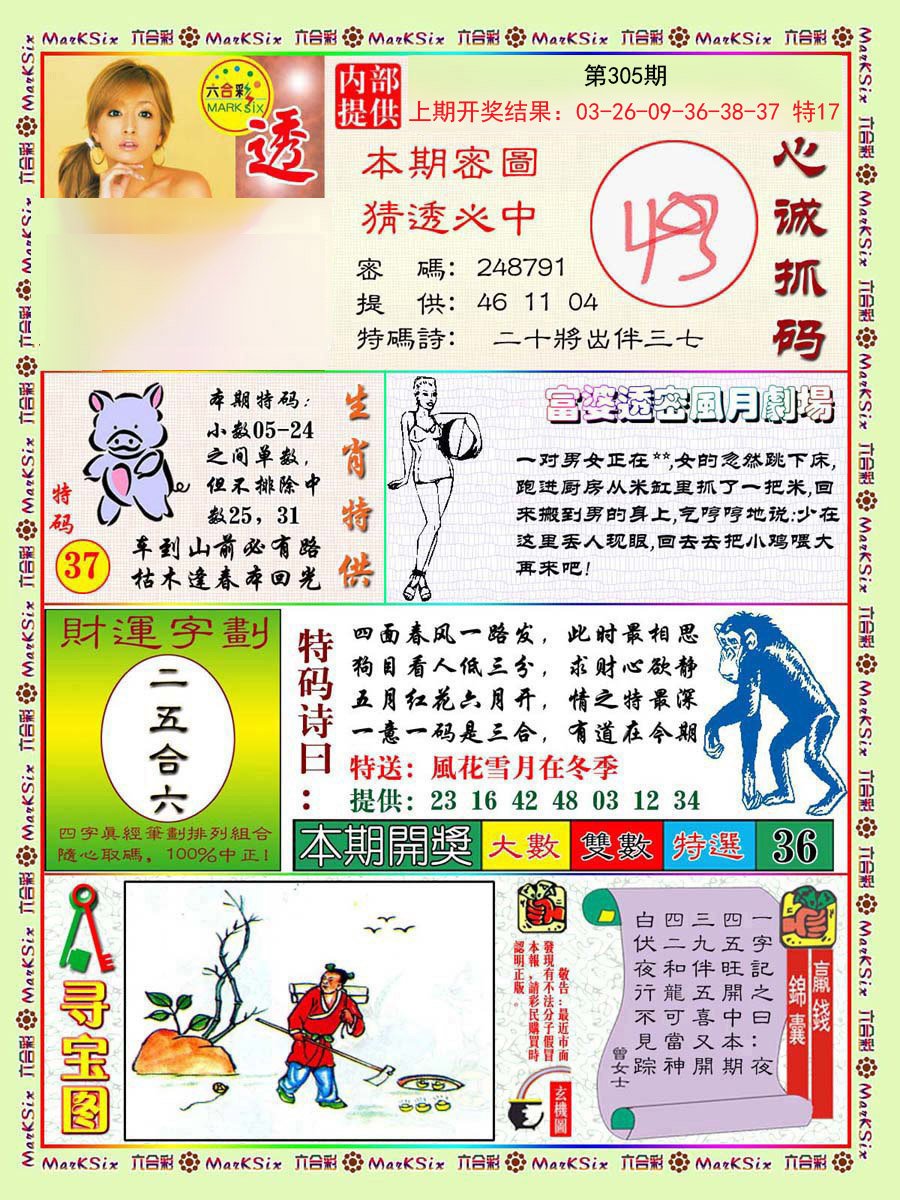 MarKSix 六合彩 MarKSix 六合彩 MarKSix 六合彩 MarKSix 六合彩 MarKSix 六合彩
六合彩
MARK Six
透
内部
提供
第305期
上期开奖结果：03-26-09-36-38-37 特17
本期密圖
猜透必中
密 碼：248791
提 供：46 11 04
特碼詩： 二十將出伴三七
心诚抓码
本期特码：
小数05-24
之间单数，
但不排除中
数25，31
车到山前必有路
枯木逢春本回光
特码
37
生肖特供
富婆透密風月劇場
一对男女正在**,女的忽然跳下床,
跑进厨房从米缸里抓了一把米,回
来搬到男的身上,气哼哼地说:少在
这里丢人现眼,回去去把小鸡喂大
再来吧!
財運字劃
二五合六
四字真經筆劃排列組合
隨心取碼，100%中正!
特码诗曰：
四面春风一路发，此时最相思
狗目看人低三分，求财心欲静
五月红花六月开，情之特最深
一意一码是三合，有道在今期
特送：風花雪月在冬季
提供：23 16 42 48 03 12 34
本期開獎 大數 雙數 特選 36
寻宝图
敬告：最近市面
發現有不法分子假冒
本報，請彩民購買時
認明正版。
玄機圖
一字記之曰：夜
四五旺開中本期
三九伴五喜又開
四二和龍可當神
白伏夜行不見踪
曾女士
贏錢
錦囊
MarKSix 六合彩 MarKSix 六合彩 MarKSix 六合彩 MarKSix 六合彩 MarKSix 六合彩